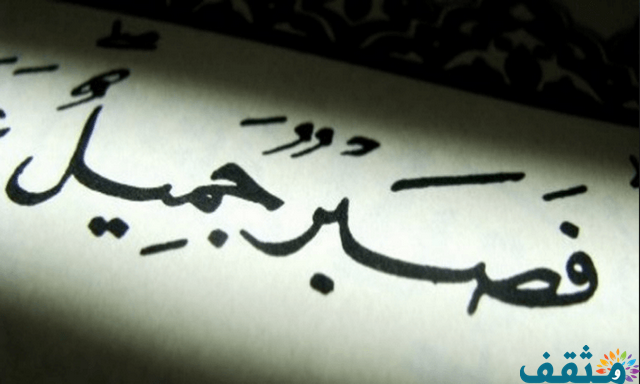 فَصَبْرٌ جَمِيلٌ
مثقف